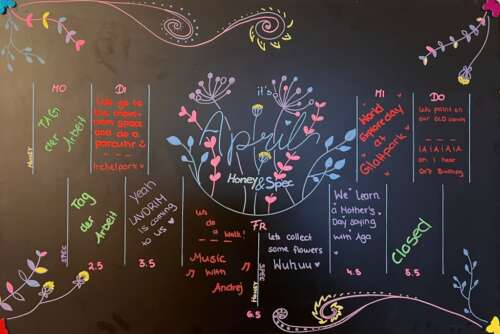 MO
DI
MI
DO
it's
April
Honey
&Spec
HONEY
TAG
der
Arbeit
We go to
the
space
and do a
parcour?
Irchelpark
World
at
Glattpark
We paint on
our OLD cards
IAIAIA
SPEC
Tag
der
Arbeit
2.5
Yeah
LAVORIM
is coming
to US
3.5
We
do
a walk!
Music
with
Andrej
FR
Lets collect
some flowers
Wuhuu
SPEC
HONEY
6.5
We Learn
a Mother's
Day saying
with Aga
4.5
Closed
5.5